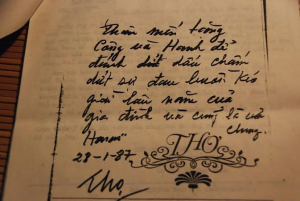 Thân mến tặng
Công và Hạnh để
đánh dứt dấu chấm
dứt sự đau buồn kéo
dài lâu năm của
gia đình và cũng là vở
Hanoi chung.
28-1-87
THƠ
Thọ